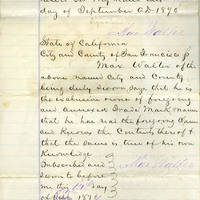 day of September A.D. 1890
State of California
City and County of San Francisco
Max Walter of the
above named City and County
being duly sworn says that he is
the exclusive owner of foregoing
and annexed Trade Mark name
that he has read the foregoing claim
and knows the contents thereof &
that the same is true of his own
Knowledge
Subscribed and
sworn to before
me this day
of Sept 1890